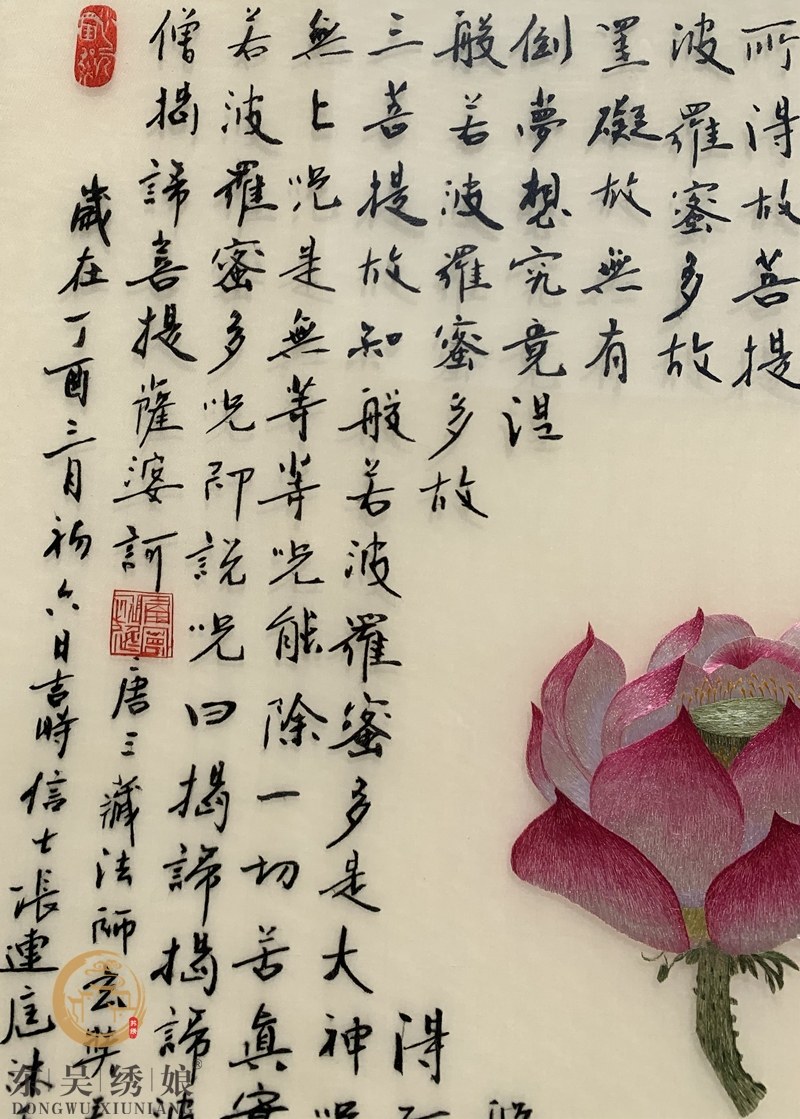 所得故菩提
波羅蜜多故
罣礙故無有
倒夢想究竟涅
般若波羅蜜多故
得
三菩提故知般若波羅蜜多是大神
無上呪是無等等呪能除一切苦真實
若波羅蜜多呪即説呪曰揭諦揭諦波
僧揭諦菩提薩婆訶
唐三藏法師玄奘
歲在丁酉三月初六日吉時信士張連庭沐
东吴绣娘
DONGWUXIUNIANG